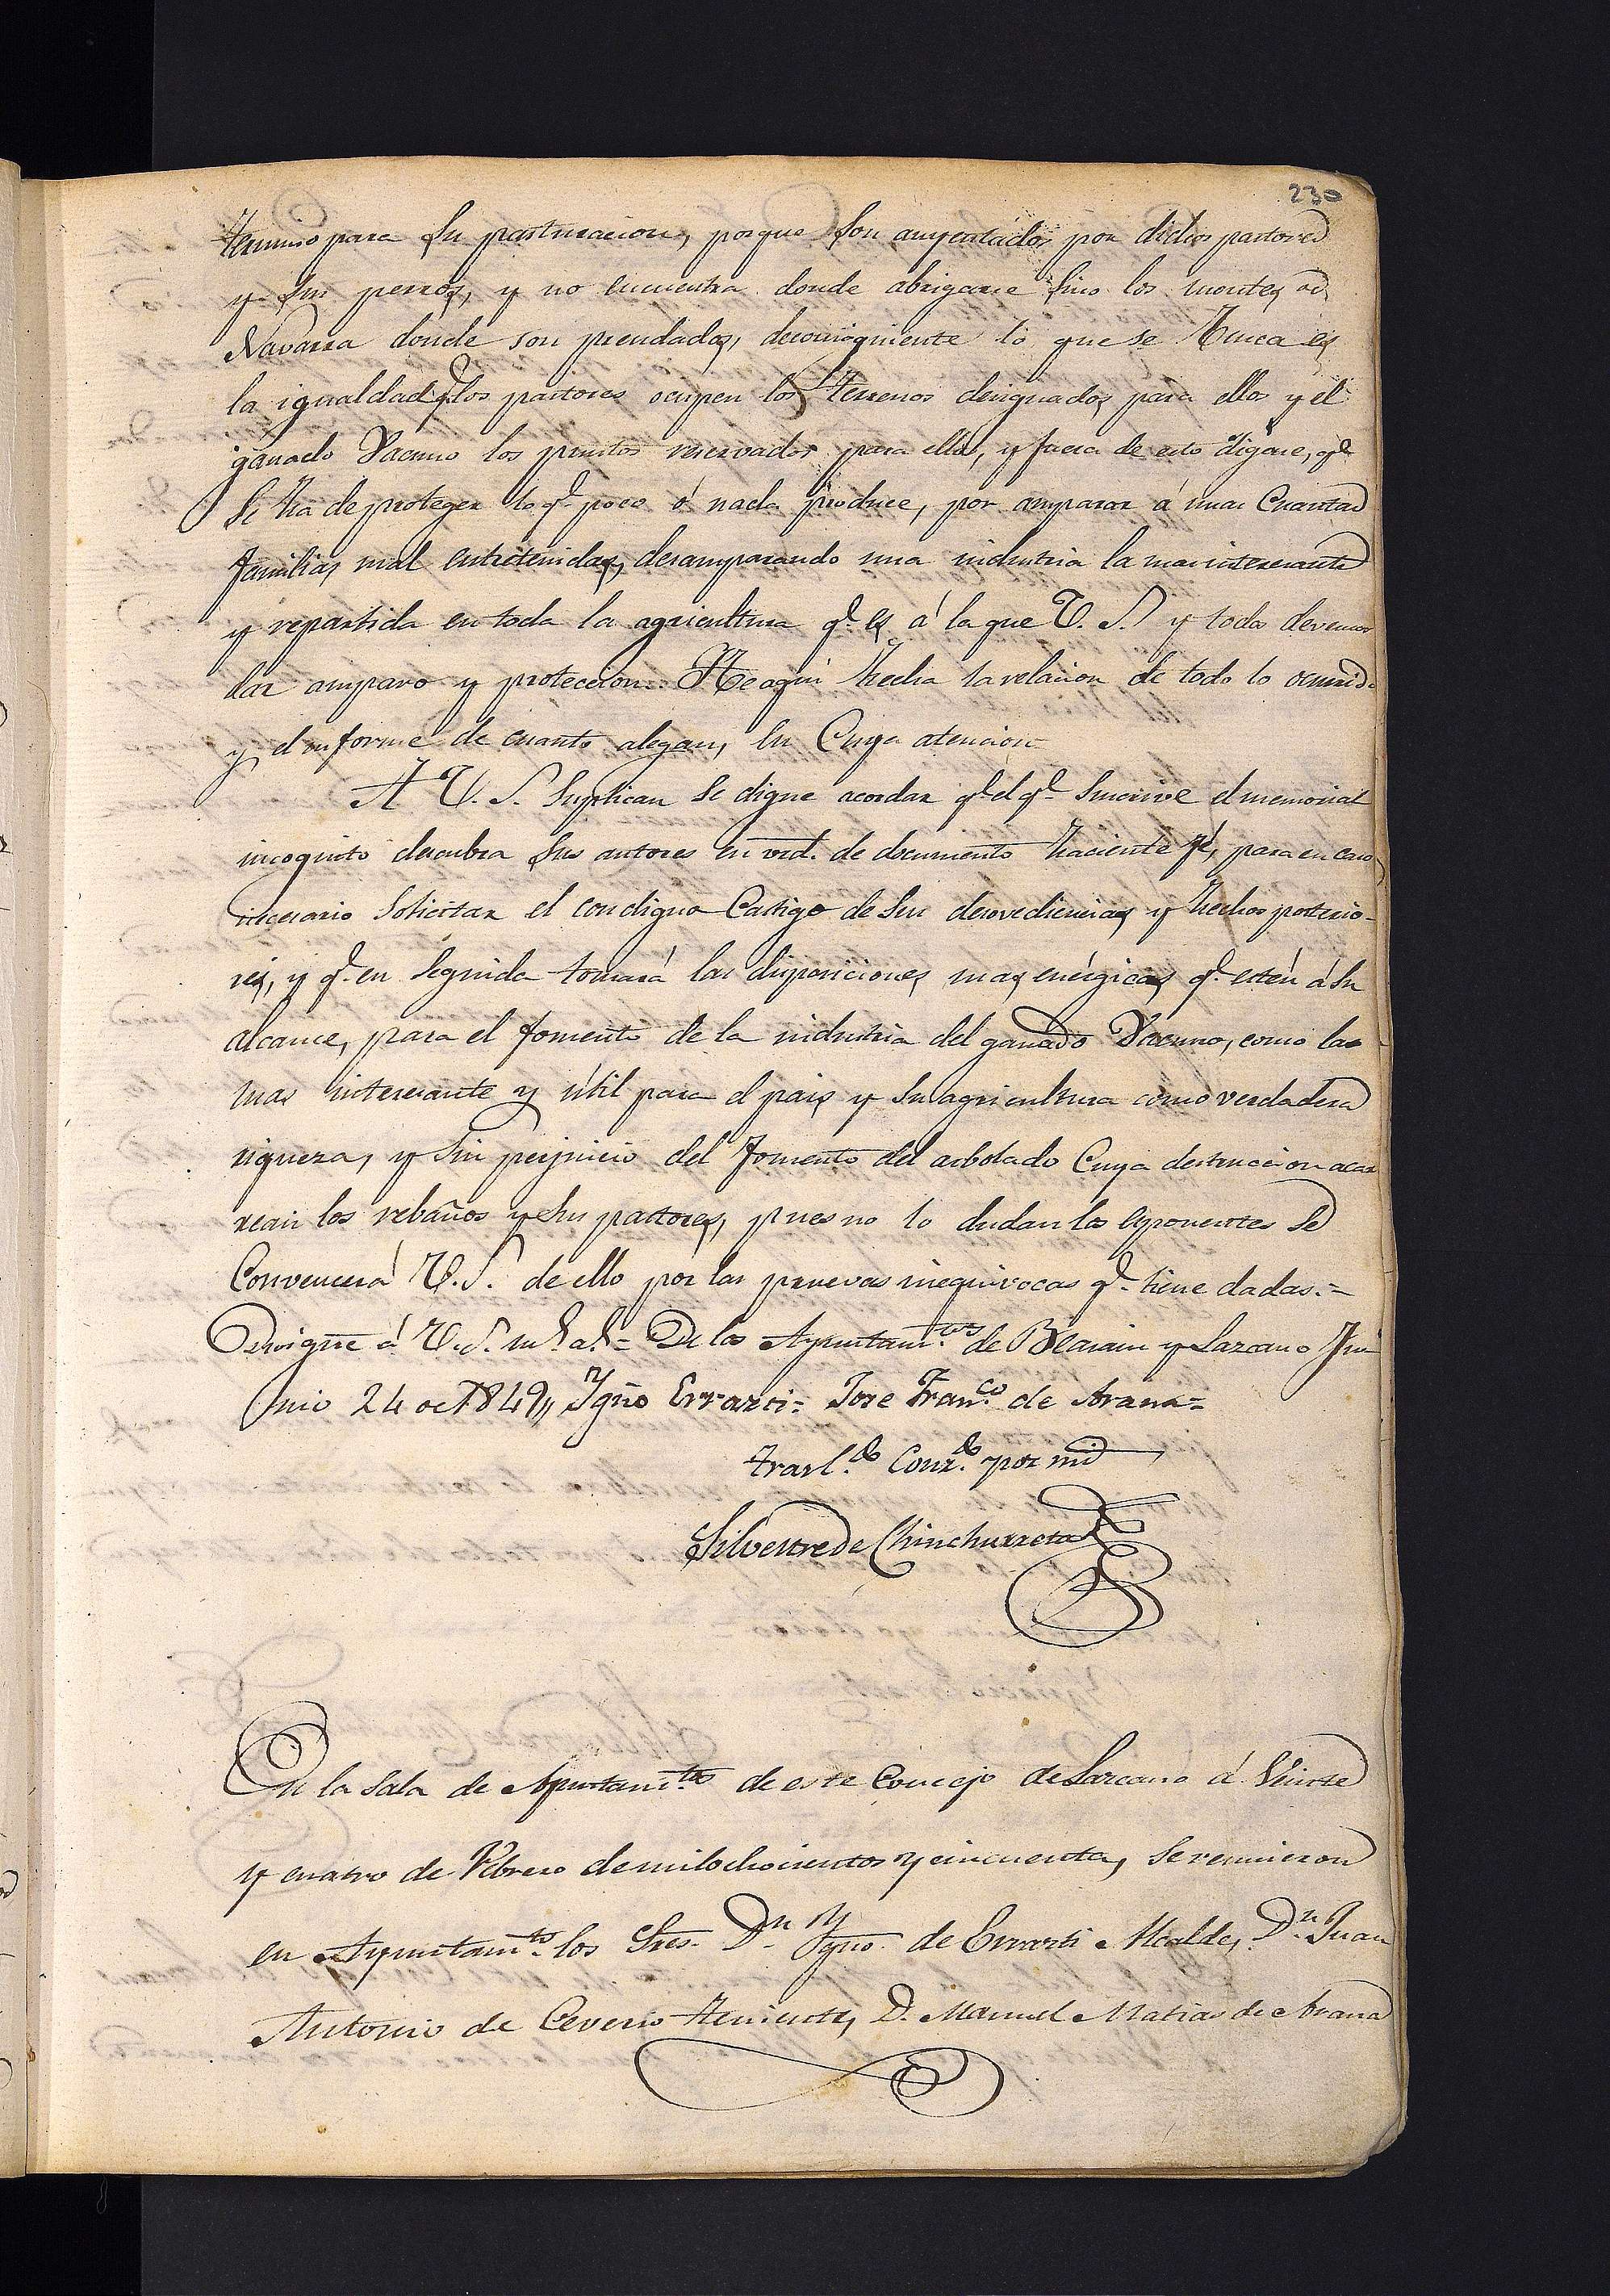 230
termino para su pasturacion, porque son auyentados por dichos pastores
y sus perros, y no encuentra donde abrigarse sino los montes de
Navarra donde son prendados, deconsiguiente lo que se busca es
la igualdad q.e los pastores ocupen los terrenos designados para ellos y el
ganado Vacuno los puntos reservados para ellos, y fuera de esto digase, q.e
se ha de proteger lo q.e poco ó nada produce, por amparar á unas Cuantas
familias mal entretenidas, desamparando una industria la mas interesante
y repartida en toda la agricultura q.e es á la que V. S. y todos devemos
dar amparo y proteccion. He aqui hecha la relacion de todo lo ocurrido
y el informe de cuanto alegan, en Cuya atencion
A V. S. Suplican se digne acordar q.e el q.e suscrive el memorial
incognito descubra sus autores en vrd. de documento haciente fé, para en caso
necesario Solicitar el condigno Castigo de sus desovediencias y hechos posterio-
res, y q.e en seguida tomará las disposiciones mas enérgicas q.e estén á su
alcance, para el fomento de la industria del ganado Vacuno, como la
mas interesante y útil para el pais y su agricultura como verdadera
riqueza, y sin perjuicio del fomento del arbolado Cuya destruccion acar
rean los rebaños y sus pastores, pues no lo dudan los esponentes se
Convencerá V. S. de ello por las pruevas inequivocas q.e tiene dadas.=
Dios gue á V. S. m.s a.s = De los Ayuntam.tos de Beasain y Lazcano Ju
nio 24 de 1849,, Ygño Errazti= Jose Fran.co de Arana=
trasl.do Conz.do por mi
Silvestre de Chinchurreta
En la Sala de Ayuntam.tos de este Concejo de Lazcano á Veinte
y cuatro de Febrero de mil ochocientos y cincuenta, se reunieron
en Ayuntam.to los Sres. D.n Ygno. de Errazti Alcalde, D.n Juan
Antonio de Ceverio teniente, D. Manuel Matias de Arana